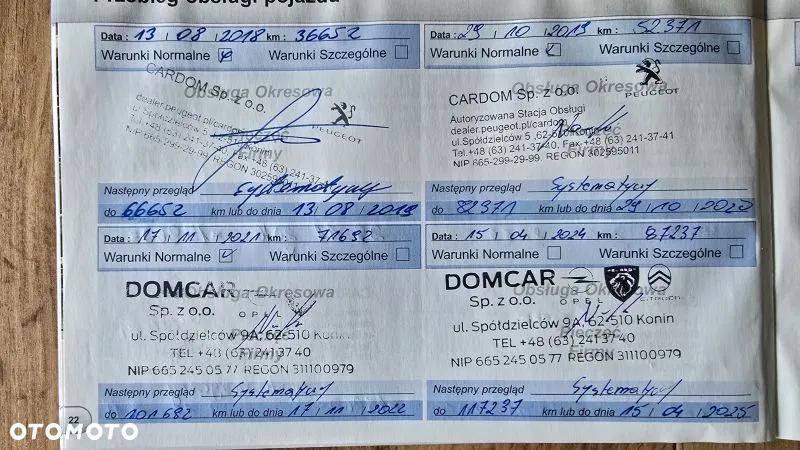 Przebieg obsługi pojazdu
Data : 13 | 08 | 2018 km : 36652
Warunki Normalne Warunki Szczególne
Obsługa Okresowa
CARDOM Sp. z o.o.
dealer.peugeot.pl/cardom
ul. Spółdzielców 5, 62-510 Konin
Tel.+48 (63) 241-37-40, Fax +48 (63) 241-37-41
NIP 665-299-29-99. REGON 302595011
PEUGEOT
Pieczęć
Firmy
Następny przegląd Systematyczny
do 66652 km lub do dnia 13 | 08 | 2019
Data : 29 | 10 | 2019 km : 52371
Warunki Normalne Warunki Szczególne
Obsługa Okresowa
CARDOM Sp. z o.o.
PEUGEOT
Autoryzowana Stacja Obsługi
dealer.peugeot.pl/cardom
ul.Spółdzielców 5 ,62-510 Konin
Tel.+48 (63) 241-37-40, Fax +48 (63) 241-37-41
NIP 665-299-29-99. REGON 302595011
Pieczęć
Firmy
Następny przegląd Systematyczny
do 82371 km lub do dnia 29 | 10 | 2020
Data : 17 | 11 | 2021 km : 71692
Warunki Normalne Warunki Szczególne
Obsługa Okresowa
DOMCAR
Sp. z o.o. OPEL
ul. Spółdzielców 9A, 62-510 Konin
Pieczęć
TEL +48 (63) 241 37 40
Firmy
NIP 665 245 05 77 REGON 311100979
Następny przegląd Systematyczny
do 101692 km lub do dnia 17 | 11 | 2022
Data : 15 | 04 | 2024 km : 87237
Warunki Normalne Warunki Szczególne
Obsługa Okresowa
DOMCAR
Sp. z o.o. OPEL CITROËN
ul. Spółdzielców 9A, 62-510 Konin
Pieczęć
TEL +48 (63) 241 37 40
Firmy
NIP 665 245 05 77 REGON 311100979
Następny przegląd Systematyczny
do 117237 km lub do dnia 15 | 04 | 2025
22
OTOMOTO